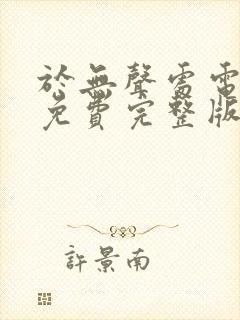 於無聲雷電
免費完整版
許景南